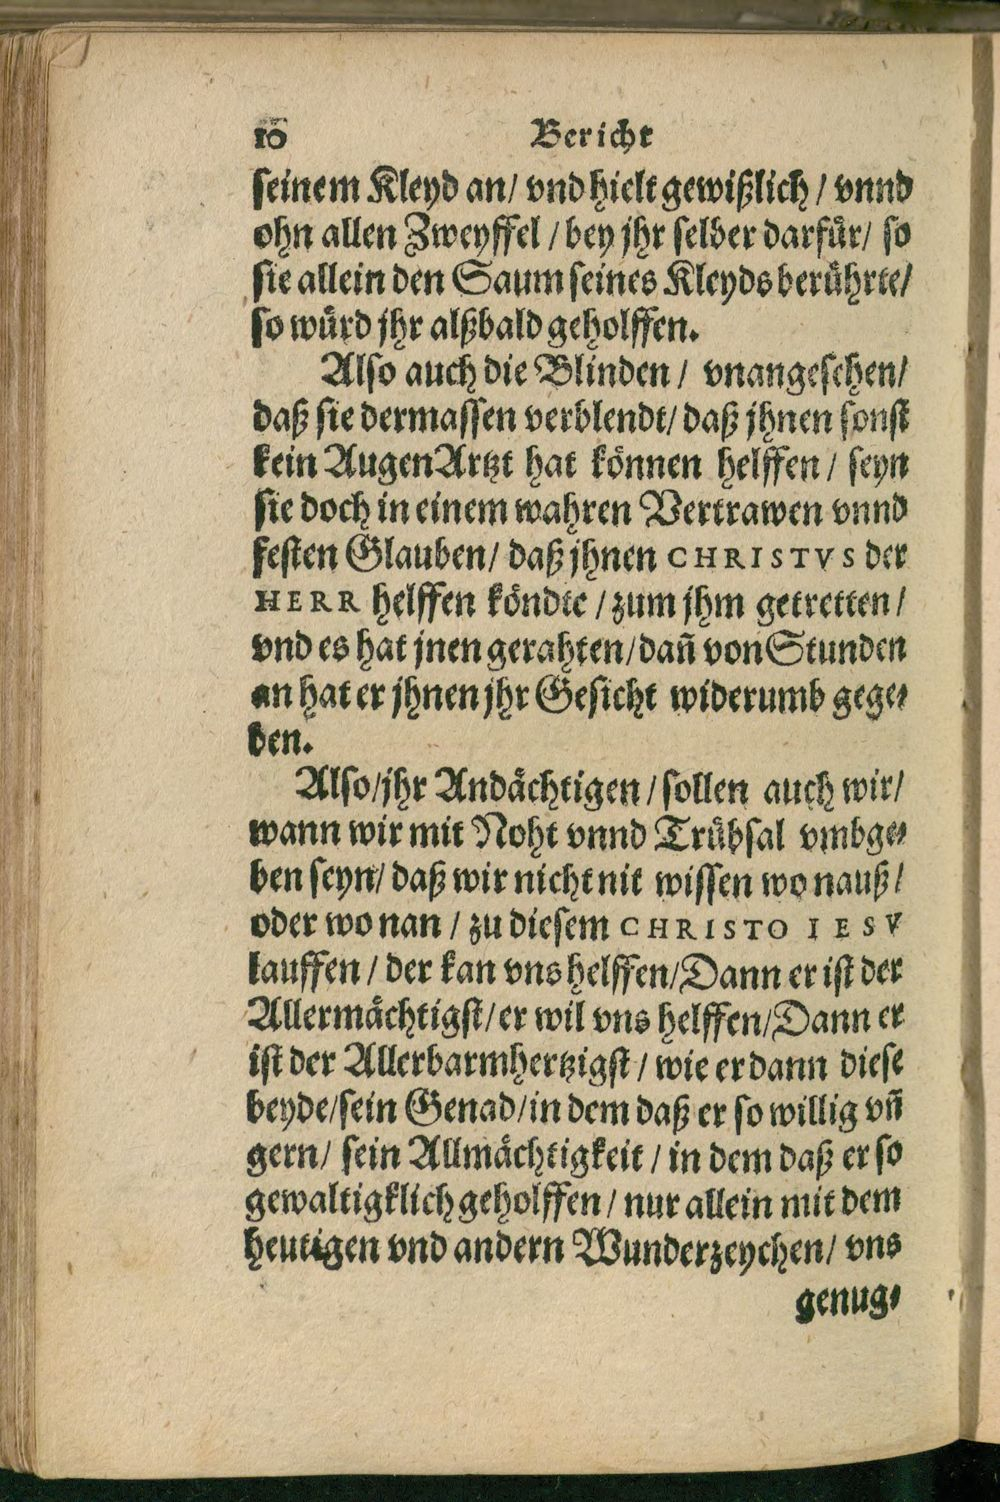 10 Bericht
seinem Kleyd an/ vnd hielt gewißlich / vnnd
ohn allen Zweyffel / bey jhr selber darfuͤr/ so
sie allein den Saum seines Kleyds beruͤhrte/
so wuͤrd jhr alßbald geholffen.
Also auch die Blinden / vnangesehen/
daß sie dermassen verblendt/ daß jhnen sonst
kein AugenArtzt hat koͤnnen helffen / seyn
sie doch in einem wahren Vertrawen vnnd
festen Glauben/ daß jhnen CHRISTVS der
HERR helffen koͤndte / zum jhm getretten /
vnd es hat jnen gerahten/ dañ von Stunden
an hat er jhnen jhr Gesicht widerumb gege⸗
ben.
Also/jhr Andaͤchtigen / sollen auch wir/
wann wir mit Noht vnnd Truͤbsal vmbge⸗
ben seyn/ daß wir nicht nit wissen wo nauß /
oder wo nan / zu diesem CHRISTO IESV
lauffen / der kan vns helffen/Dann er ist der
Allermaͤchtigst/ er wil vns helffen/Dann er
ist der Allerbarmhertzigst / wie er dann diese
beyde/sein Genad/in dem daß er so willig vñ
gern/ sein Allmaͤchtigkeit / in dem daß er so
gewaltigklich geholffen / nur allein mit dem
heutigen vnd andern Wunderzeychen/ vns
genug⸗